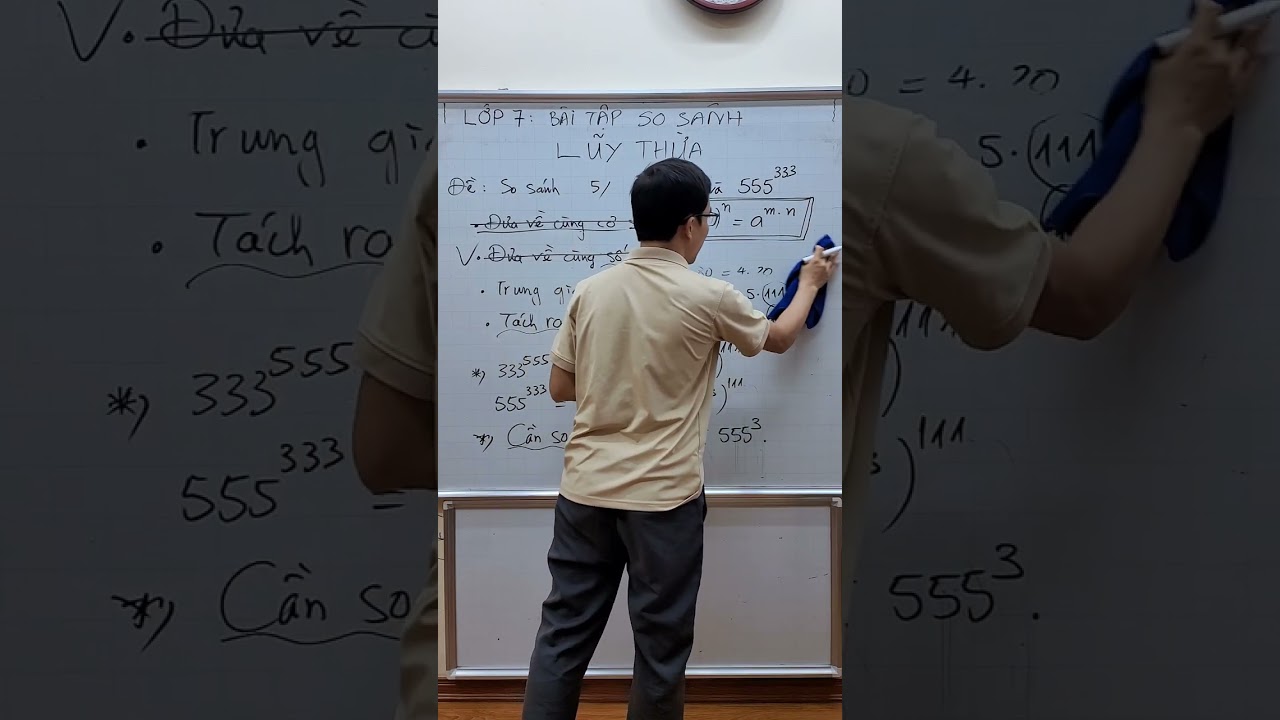 LỚP 7: BÀI TẬP SO SÁNH
LŨY THỪA
Đề: So sánh 5/ và 555³³³
• Đưa về cùng cơ )ⁿ = a^{m.n}
V • Đưa về cùng số
• Trung gi 0 = 4.20
5.(111
• Tách ra
*) 333⁵⁵⁵ )¹¹¹
555³³³ = )¹¹¹
*) Cần so 555³.